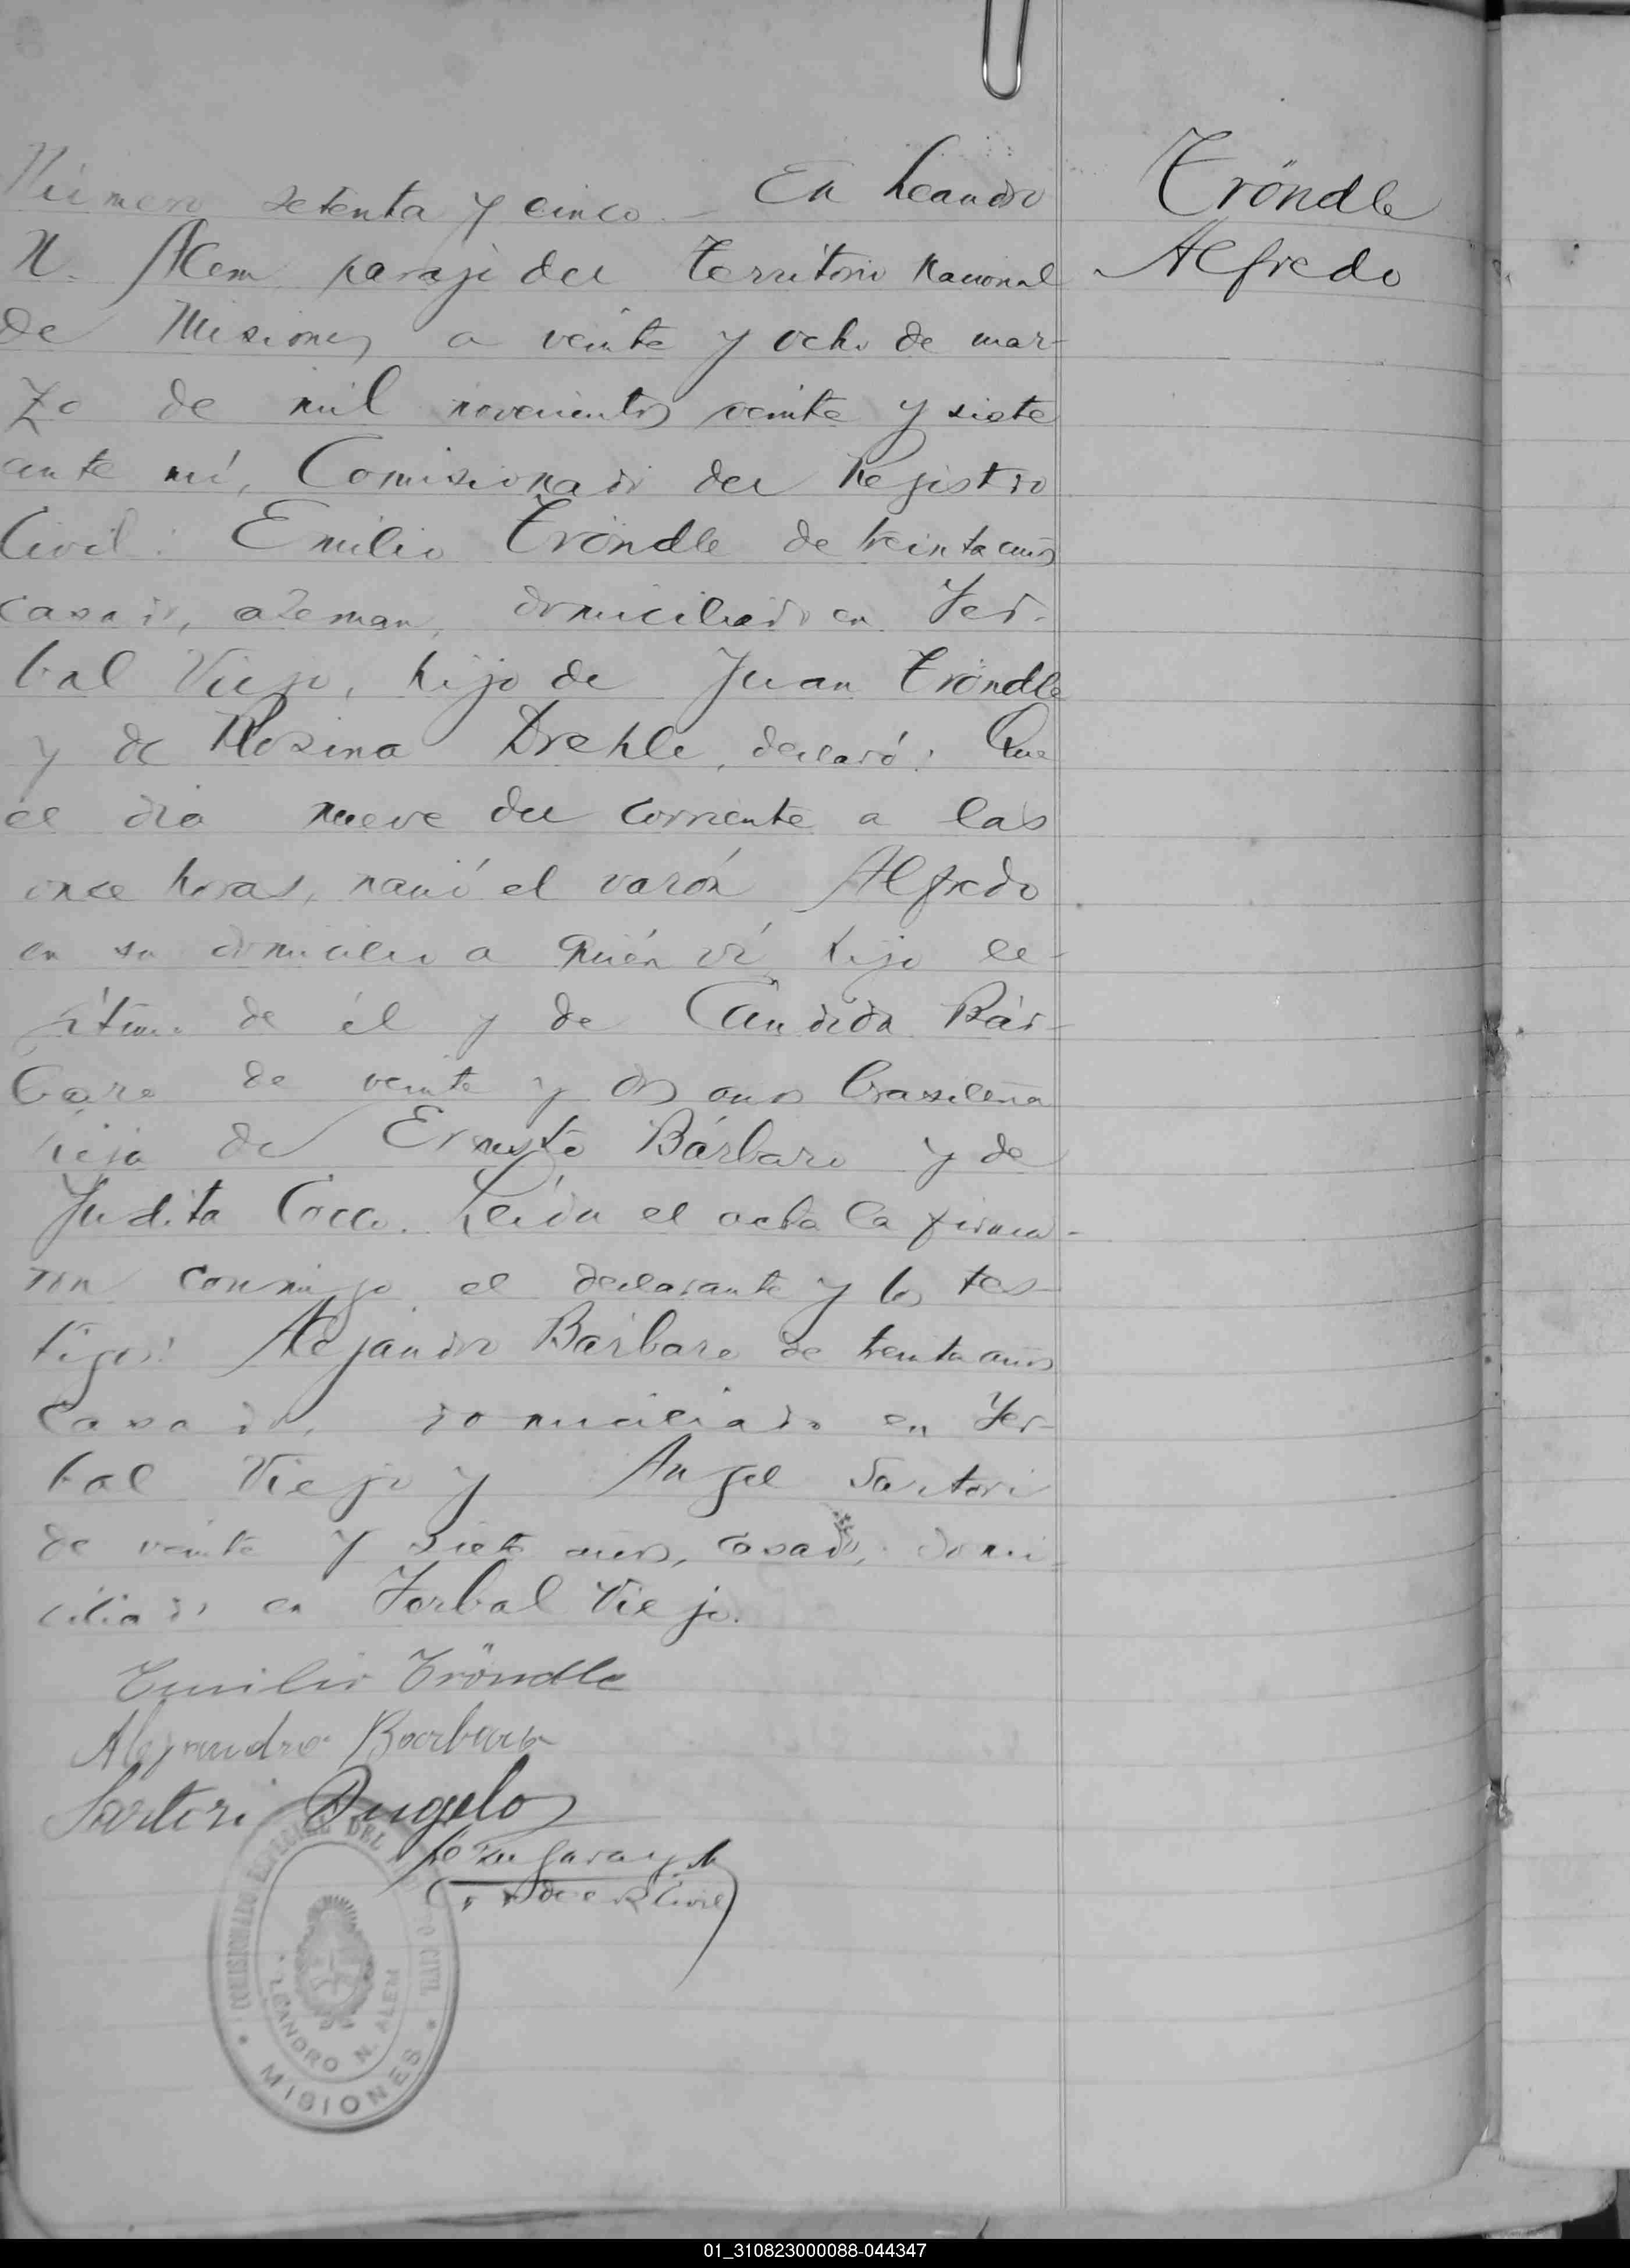 Número setenta y cinco - En Leandro
N. Alem paraje del Territorio Nacional
de Misiones a veinte y ocho de mar-
zo de mil novecientos veinte y siete
ante mí, Comisionado del Registro
Civil: Emilio Tröndle de treinta años
casado, aleman, domiciliado en Yer-
bal Viejo, hijo de Juan Tröndle
y de Rosina Drehle, declaró: Que
el dia nueve del corriente a las
once horas, nació el varón Alfredo
en su domicilio a quién ví, hijo le-
gítimo de él y de Cándida Bár-
baro de veinte y dos años brasileña
hija de Ernesto Bárbaro y de
Judita Cocco. Leída el acta la firma-
ron conmigo el declarante y los tes-
tigos: Alejandro Bárbaro de treinta años
casado, domiciliado en Yer-
bal Viejo y Angel Sartori
de veinte y siete años, casado, domi-
ciliado en Yerbal Viejo.
Emilio Tröndle
Alejandro Barbaro
Sartori Angelo
R Civil
COMISIONADO ESPECIAL DEL CIVIL
LEANDRO N. ALEM
MISIONES
Tröndle
Alfredo
01_310823000088-044347